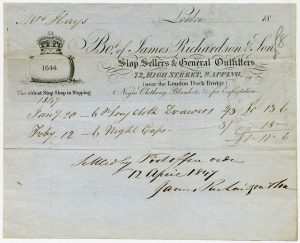 Mr Hays London 18
Bot. of James Richardson & Son,
Slop Sellers & General Outfitters,
72, HIGH STREET, WAPPING,
(near the London Dock Bridge)
Negro Clothing, Blankets, &c for Exportation.
1844
The oldest Slop Shop in Wapping
1847
Jany 20 6 Long Cloth Drawers 2/3 13 6
Feby 12 6 Night Caps 3/ 18
£1 11 6
Settled by Post office order
17 April 1847
James Richardson & Son